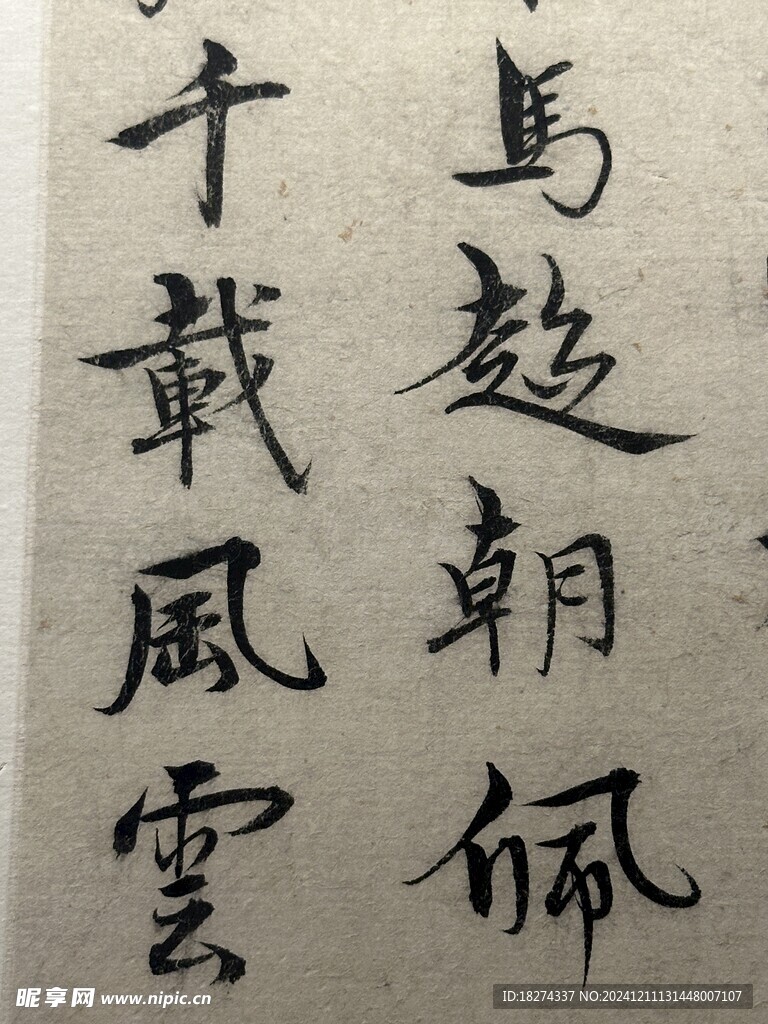 馬趍朝佩
千載風雲
昵享网 www.nipic.cn
ID:18274337 NO:20241211131448007107